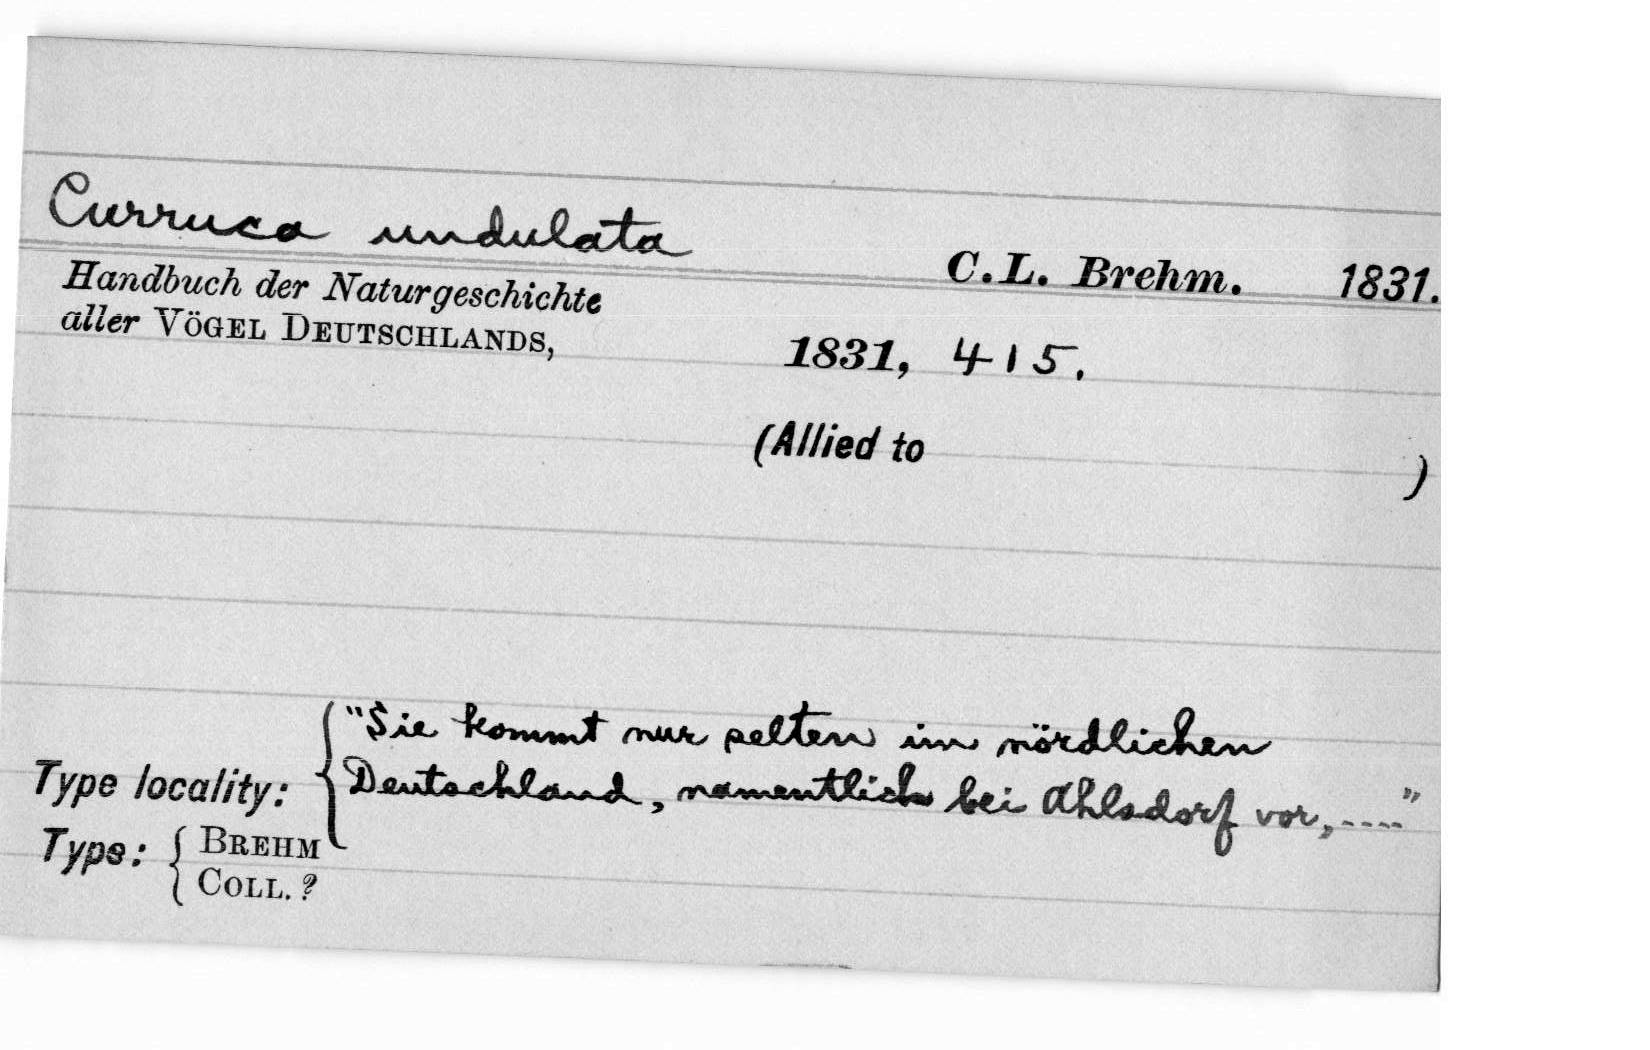 Curruca undulata
C.L. Brehm. 1831.
Handbuch der Naturgeschichte
aller VÖGEL DEUTSCHLANDS,
1831, 415.
(Allied to )
"Sie kommt nur selten im nördlichen
Type locality: { Deutschland, namentlich bei Ahlsdorf vor, ...."
Type: { BREHM
COLL. ?